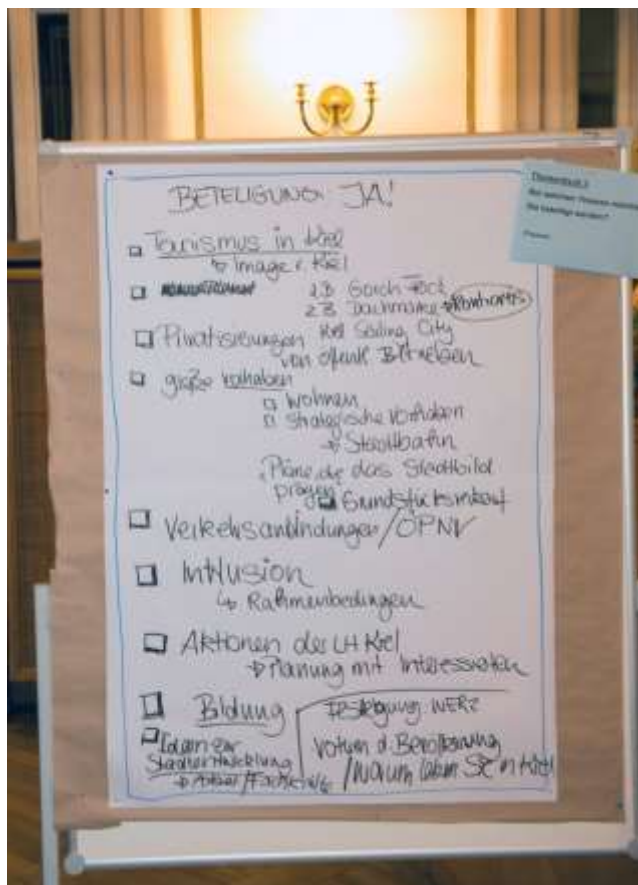 BETEILIGUNG JA!
Tourismus in Kiel
↳ Image v. Kiel
z.B. Gorch Fock
z.B. Dachmarke
Kiel Sailing City
Privatisierungen
von öffentl. Betrieben
große Vorhaben
Wohnen
strategische Vorhaben
→ Stadtbahn
Pläne, die das Stadtbild
prägen
Grundstücksverkauf
Verkehsanbindungen/ÖPNV
Inklusion
↳ Rahmenbedingungen
Aktionen der LH Kiel
→ Planung mit Interessierten
Bildung
Ideen zur
Stadtentwicklung
Festlegung WER?
Votum d. Bevölkerung
/Warum leben Sie in Kiel
Themenblock 2
Bei welchen Themen möchten
Sie beteiligt werden?